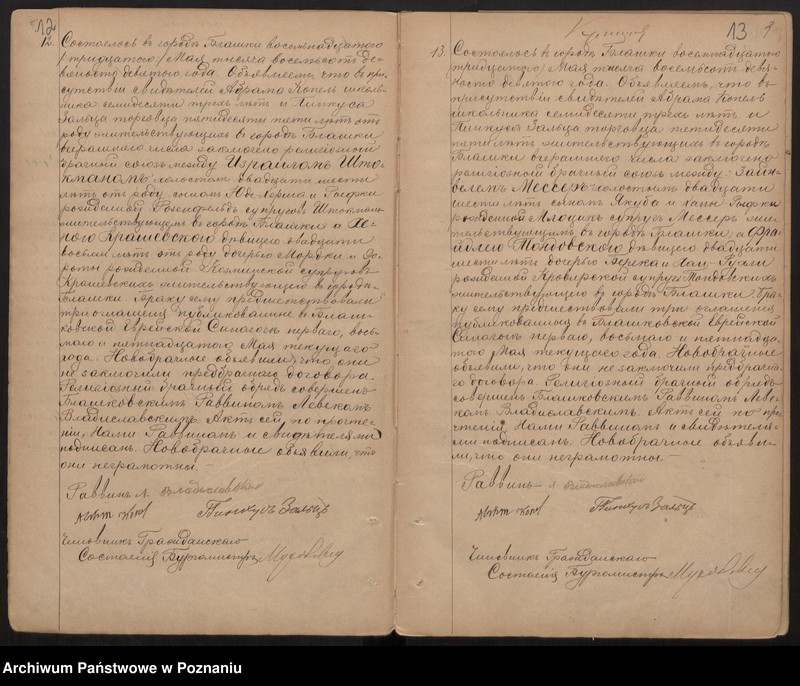 12
12.
Состоялось въ городѣ Блашки восемнадцатаго
/тридцатаго/ Мая тысяча восемьсотъ де-
вяносто девятаго года. Объявляемъ, что въ при-
сутствіи свидѣтелей Абрама Копель школь-
ника семидесяти трехъ лѣтъ и Пинкуса
Зальца торговца пятидесяти пяти лѣтъ отъ
роду жительствующихъ въ городѣ Блашки
вчерашняго числа заключено религіозный
брачный союзъ между Израиломъ Што-
кманомъ холостымъ двадцати шести
лѣтъ отъ роду, сыномъ
рожденной Розенфельдъ супруговъ Штокманъ
жительствующимъ въ городѣ Блашки а Хе-
ною Крашевскою дѣвицею двадцати
восьми лѣтъ отъ роду дочерью Мордки и До-
роты рожденной супруговъ
Крашевскихъ жительствующею въ городѣ
Блашки. Браку сему предшествовали
три оглашенія публикованные въ Блаш-
ковской Еврейской Синагогѣ перваго, вось-
маго и пятнадцатаго Мая текущаго
года. Новобрачные объявили, что они
не заключили предбрачнаго договора.
Религіозный брачный обрядъ совершенъ
Блашковскимъ Раввиномъ Левкомъ
Владиславскимъ. Актъ сей по прочте-
ніи, Нами Раввиномъ и свидѣтелями
подписанъ. Новобрачные объявили, что
они неграмотны. —
Раввинъ Л. Владиславскій
Пинкусъ Зальцъ
Чиновникъ Гражданскаго
Состоянія Бургомистръ
13
13.
Состоялось въ городѣ Блашки восемнадцатаго
/тридцатаго/ Мая тысяча восемьсотъ девя-
носто девятаго года. Объявляемъ, что въ
присутствіи свидѣтелей Абрама Копель
школьника семидесяти трехъ лѣтъ и
Пинкуса Зальца торговца пятидесяти
пяти лѣтъ жительствующихъ въ городѣ
Блашки вчерашняго числа заключено
религіозный брачный союзъ между Зайн-
велемъ Мессеръ холостымъ двадцати
шести лѣтъ сыномъ Якуба и Ханы
рожденной супруговъ Мессеръ жи-
тельствующимъ въ городѣ Блашки, а Фра-
йдлею Тондовскою дѣвицею двадцати
шести лѣтъ дочерью Берека и
рожденной супруговъ Тондовскихъ
жительствующею въ городѣ Блашки. Бра-
ку сему предшествовали три оглашенія
публикованныя въ Блашковской Еврейской
Синагогѣ перваго, восьмаго и пятнадца-
таго Мая текущаго года. Новобрачные
объявили, что они не заключили предбрачна-
го договора. Религіозный брачный обрядъ
совершенъ Блашковскимъ Раввиномъ Лев-
комъ Владиславскимъ. Актъ сей по про-
чтеніи, Нами Раввиномъ и свидѣтеля-
ми подписанъ. Новобрачные объяви-
ли, что они неграмотны. —
Раввинъ Л. Владиславскій
Пинкусъ Зальцъ
Чиновникъ Гражданскаго
Состоянія Бургомистръ
Archiwum Państwowe w Poznaniu